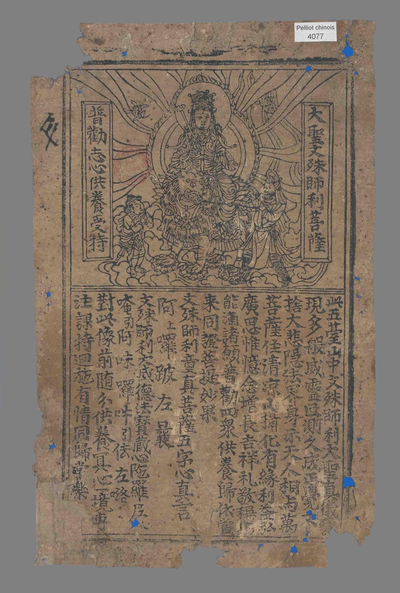 Pelliot chinois
4077
大聖文殊師利菩薩
普勸志心供養受持
此五臺山中文殊師利大聖真儀
現多般威靈叵測久成正覺不
捨大悲隱法界身示天人相與萬
菩薩住清涼山攝化有緣利益弘
廣思惟憶念增長吉祥礼敬稱揚
能滿諸願普勸四眾供養歸依當
來同證菩提妙果
文殊師利童真菩薩五字心真言
阿上囉跛左曩
文殊師利大威德法寶藏心陀羅尼
唵引阿味囉吽引佉左洛
對此像前隨分供養冀心境專
注課持迴施有情同歸常樂